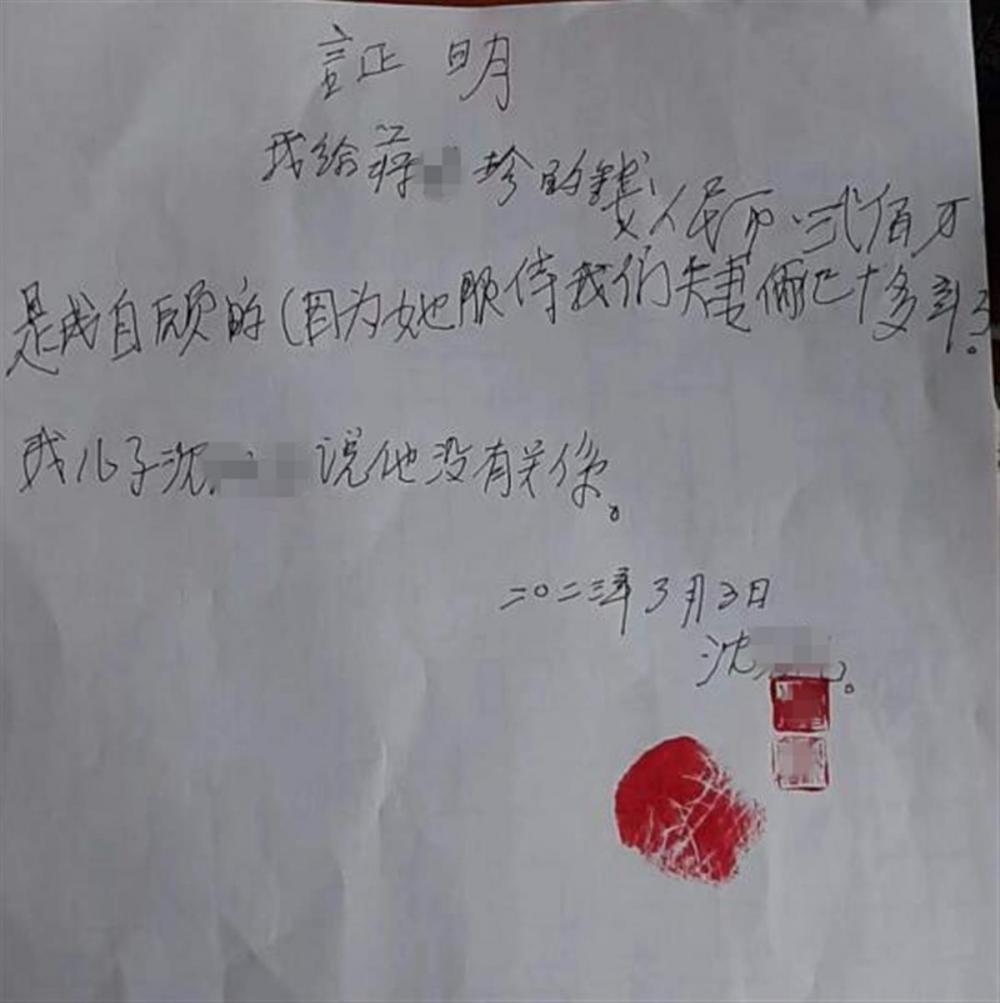 証明
我给蒋 珍的錢
人民币、弍佰万
是我自愿的(因为她服侍我们夫妻俩已十多年了。
我儿子沈 说他没有关係。
二〇二三年3月3日
沈